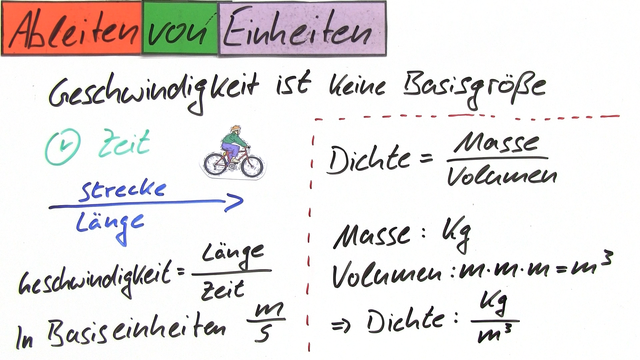 Ableiten von Einheiten
Geschwindigkeit ist keine Basisgröße
Zeit
Strecke
Länge
Geschwindigkeit = Länge / Zeit
In Basiseinheiten m / s
Dichte = Masse / Volumen
Masse: Kg
Volumen: m·m·m = m³
⇒ Dichte: Kg / m³